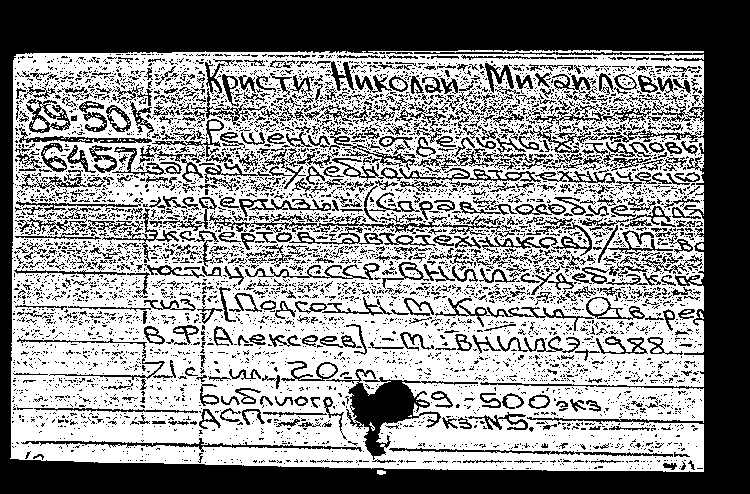 Кристи, Николай Михайлович.
89-50к
6457
Решение отдельных типовы
задач судебной автотехническо
экспертизы: (Справ. пособие для
экспертов-автотехников) / М-во
юстиции СССР, ВНИИ судеб. экспе
тиз; [Подгот. Н. М. Кристи; Отв. ред
В. Ф. Алексеев]. - М. : ВНИИСЭ, 1988. -
71 с. : ил.; 20 см.
Библиогр. 69. - 500 экз.
ДСП. Экз. N5.